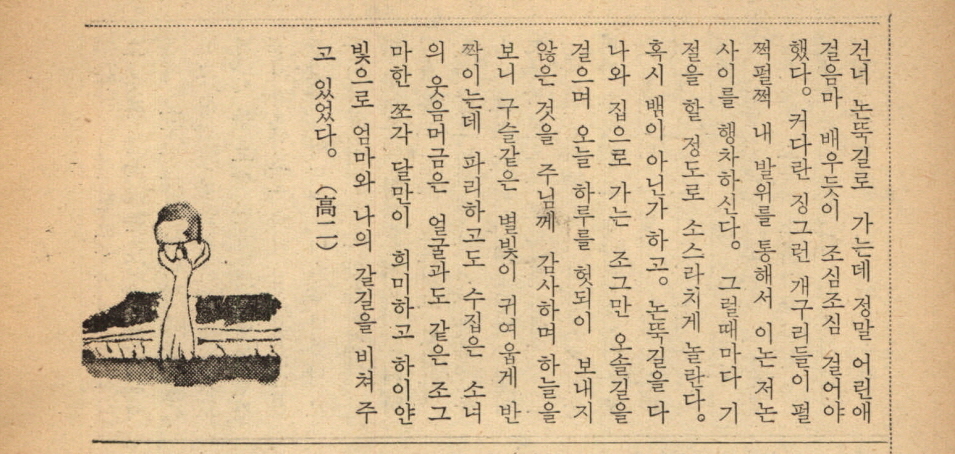 건너 논뚝길로 가는데 정말 어린애
걸음마 배우듯이 조심조심 걸어야
했다. 커다란 징그런 개구리들이 펄
쩍펄쩍 내 발위를 통해서 이논 저논
사이를 행차하신다. 그럴때마다 기
절을 할 정도로 소스라치게 놀란다.
혹시 뱀이 아닌가 하고. 논뚝길을 다
나와 집으로 가는 조그만 오솔길을
걸으며 오늘 하루를 헛되이 보내지
않은 것을 주님께 감사하며 하늘을
보니 구슬같은 별빛이 귀여웁게 반
짝이는데 파리하고도 수집은 소녀
의 웃음머금은 얼굴과도 같은 조그
마한 쪼각 달만이 희미하고 하이얀
빛으로 엄마와 나의 갈길을 비쳐 주
고 있었다. (高二)